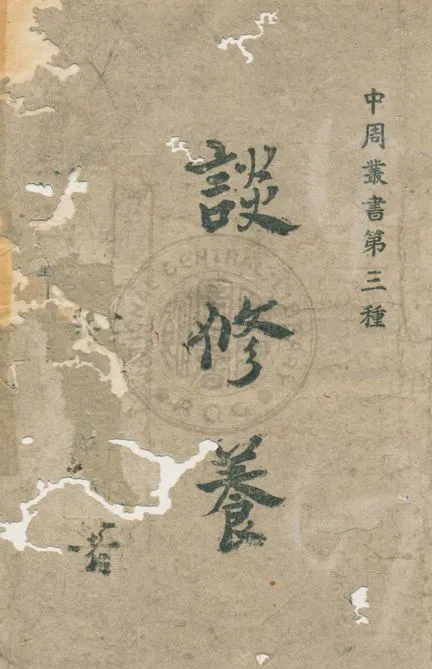 中周叢書第三種
談修養
著
NATIONAL CENTRAL LIBRARY
R.O.C.